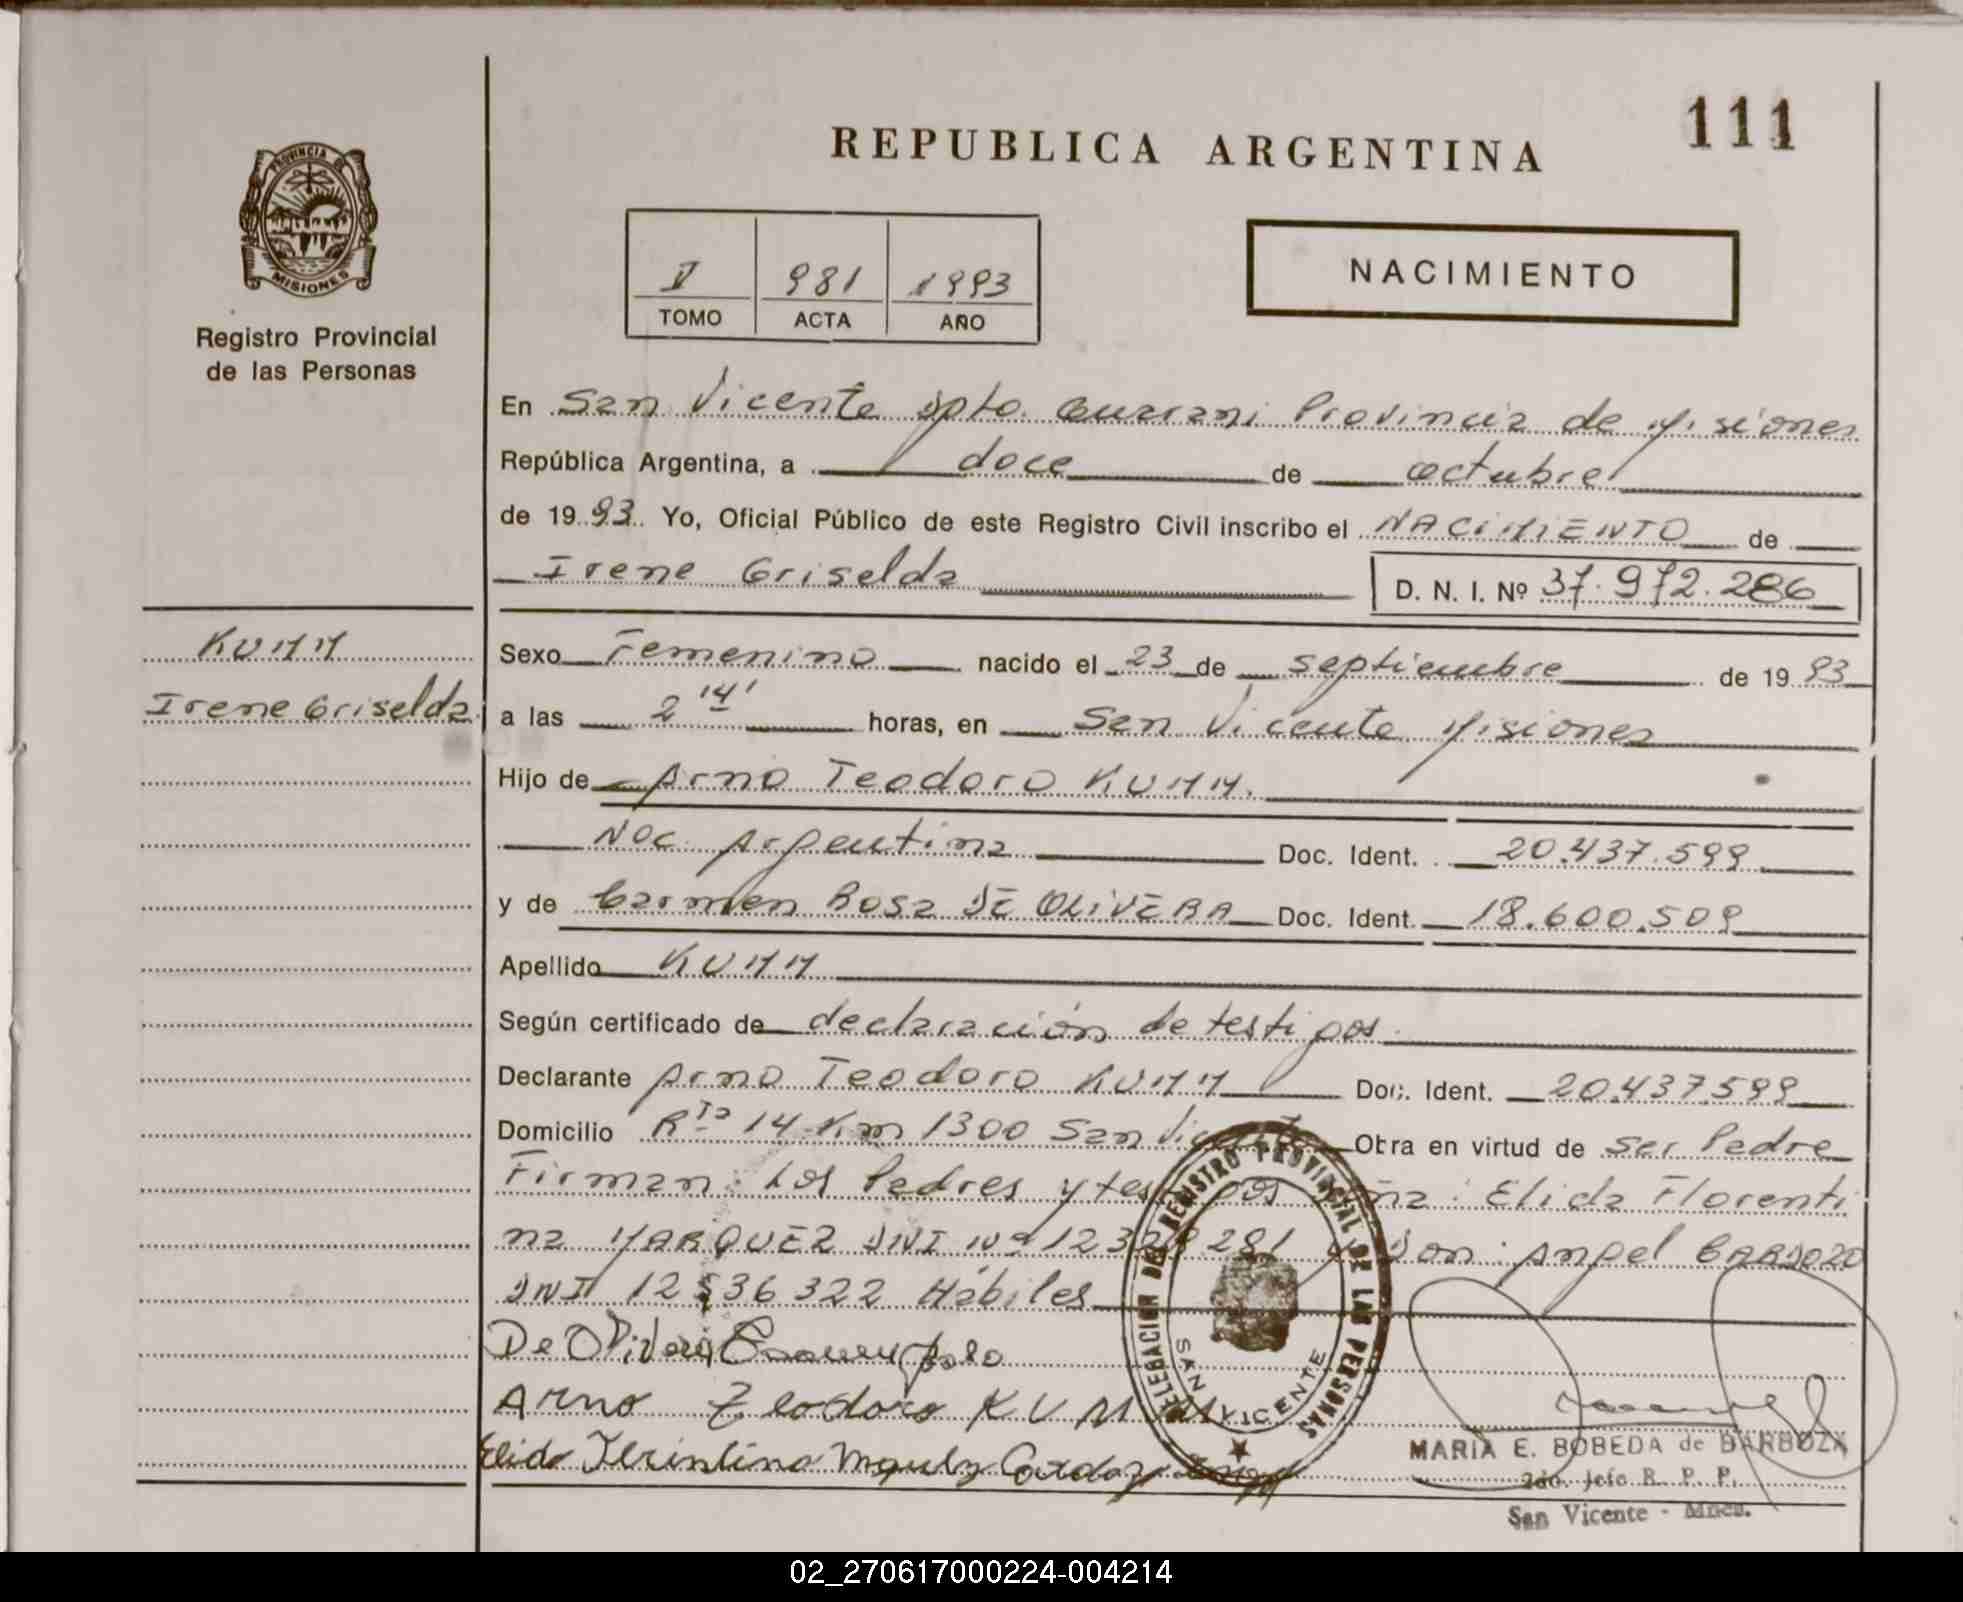 111
REPUBLICA ARGENTINA
PROVINCIA DE
MISIONES
Registro Provincial
de las Personas
V 981 1993
TOMO ACTA AÑO
NACIMIENTO
En San Vicente Dpto. Guarani Provincia de Misiones
República Argentina, a doce de octubre
de 1993. Yo, Oficial Público de este Registro Civil inscribo el NACIMIENTO de
Irene Griselda
D. N. I. Nº 37.972.286
KUMM
Irene Griselda
Sexo Femenino nacido el 23 de septiembre de 1993
a las 2 14' horas, en San Vicente Misiones
Hijo de Arno Teodoro KUMM.
Nac. Argentina Doc. Ident. 20.437.599
y de Carmen Rosa DE OLIVERA Doc. Ident. 18.600.509
Apellido KUMM
Según certificado de declaración de testigos.
Declarante Arno Teodoro KUMM Doc. Ident. 20.437.599
Domicilio Rta 14 Km 1300 San Vicente Obra en virtud de ser Padre
Firman: Los Padres y testigos Dña: Elida Florenti
na MARQUEZ DNI Nº 12 281 y Don: Angel CARDOZO
DNI 12536322 Hábiles
De Olivera
Arno Teodoro KUMM
Elida
DELEGACION DEL REGISTRO PROVINCIAL DE LAS PERSONAS
SAN VICENTE
MARIA E. BOBEDA de BARBOZA
2do. Jefe R. P. P.
San Vicente - Mnes.
02_270617000224-004214